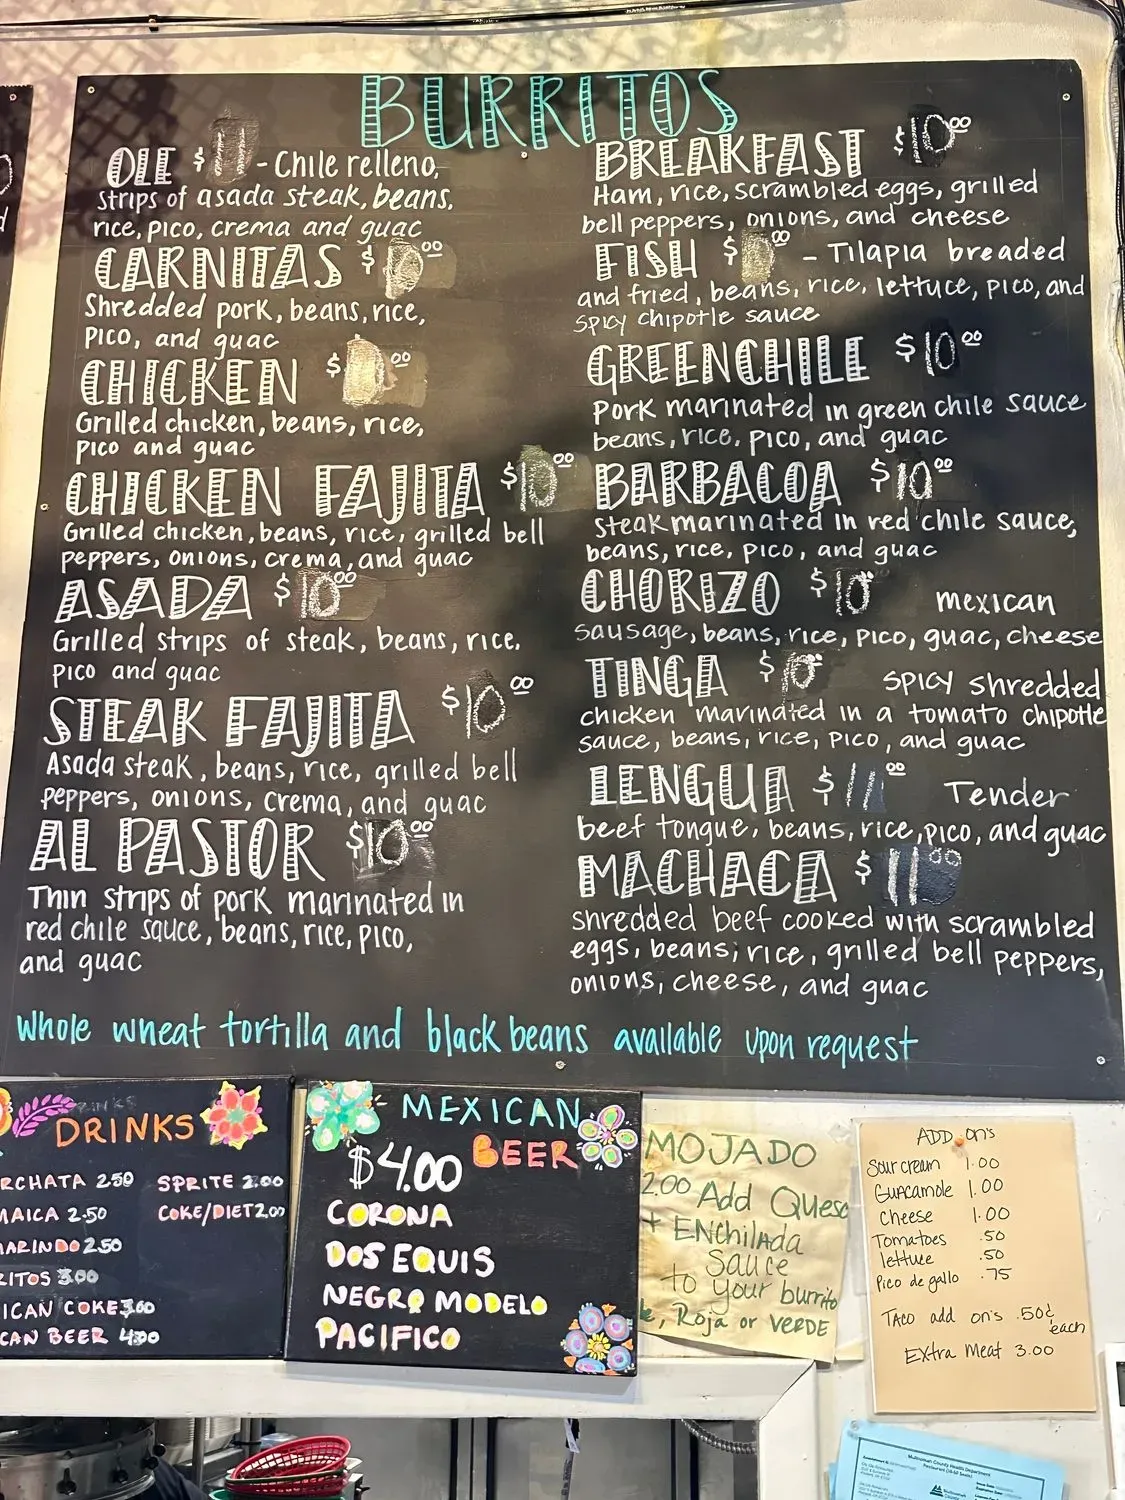 BURRITOS
OLE $11 - Chile relleno,
strips of asada steak, beans,
rice, pico, crema and guac
CARNITAS $10.00
Shredded pork, beans, rice,
pico, and guac
CHICKEN $10.00
Grilled chicken, beans, rice,
pico and guac
CHICKEN FAJITA $10.00
Grilled chicken, beans, rice, grilled bell
peppers, onions, crema, and guac
ASADA $10.00
Grilled strips of steak, beans, rice,
pico and guac
STEAK FAJITA $10.00
Asada steak, beans, rice, grilled bell
peppers, onions, crema, and guac
AL PASTOR $10.00
Thin strips of pork marinated in
red chile sauce, beans, rice, pico,
and guac
BREAKFAST $10.00
Ham, rice, scrambled eggs, grilled
bell peppers, onions, and cheese
FISH $10.00 - Tilapia breaded
and fried, beans, rice, lettuce, pico, and
spicy chipotle sauce
GREENCHILE $10.00
Pork marinated in green chile sauce
beans, rice, pico, and guac
BARBACOA $10.00
Steak marinated in red chile sauce,
beans, rice, pico, and guac
CHORIZO $10 mexican
sausage, beans, rice, pico, guac, cheese
TINGA $10 spicy shredded
chicken marinated in a tomato chipotle
sauce, beans, rice, pico, and guac
LENGUA $11.00 Tender
beef tongue, beans, rice, pico, and guac
MACHACA $11.00
shredded beef cooked with scrambled
eggs, beans, rice, grilled bell peppers,
onions, cheese, and guac
whole wheat tortilla and black beans available upon request
DRINKS
RCHATA 2.50
MAICA 2.50
MARINDO 2.50
RITOS 3.00
ICAN COKE 3.00
CAN BEER 4.00
SPRITE 2.00
COKE/DIET 2.00
MEXICAN
BEER
$4.00
CORONA
DOS EQUIS
NEGRO MODELO
PACIFICO
MOJADO
2.00 Add Queso
+ ENchilada
Sauce
to your burrito
le, Roja or VERDE
ADD on's
Sour cream 1.00
Guacamole 1.00
Cheese 1.00
Tomatoes .50
lettuce .50
Pico de gallo .75
Taco add on's .50¢
each
Extra Meat 3.00
Multnomah County Health Department